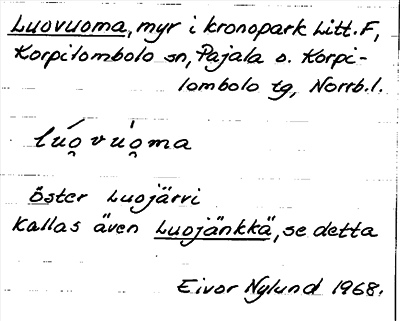 Luovuoma, myr i kronopark Litt. F,
Korpilombolo sn, Pajala o. Korpi-
lombolo tg, Norrb.l.
lúo̯vu̍o̯ma
öster Luojärvi
Kallas även Luojänkkä, se detta
Eivor Nylund 1968.